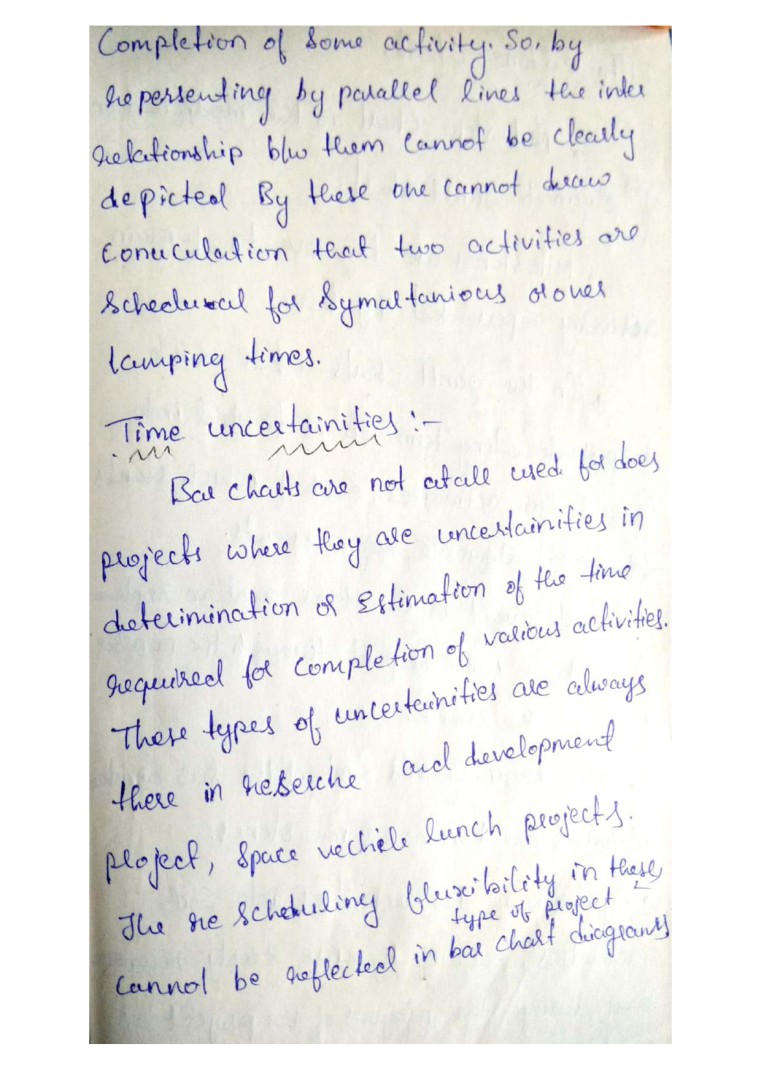 Completion of some activity. So, by
repersenting by parallel lines the inter
relationship b/w them cannot be clearly
depicted By these one cannot draw
conuculation that two activities are
Schedulcal for Symaltanious or over
lamping times.
Time uncertainities :-
Bar charts are not atall used for does
projects where they are uncertainities in
determination or Estimation of the time
required for completion of various activities.
These types of uncertainities are always
there in reserche and development
project, Space vechile lunch projects.
The re scheduling fluxibility in these
type of project
cannot be reflected in bar chart diagrams